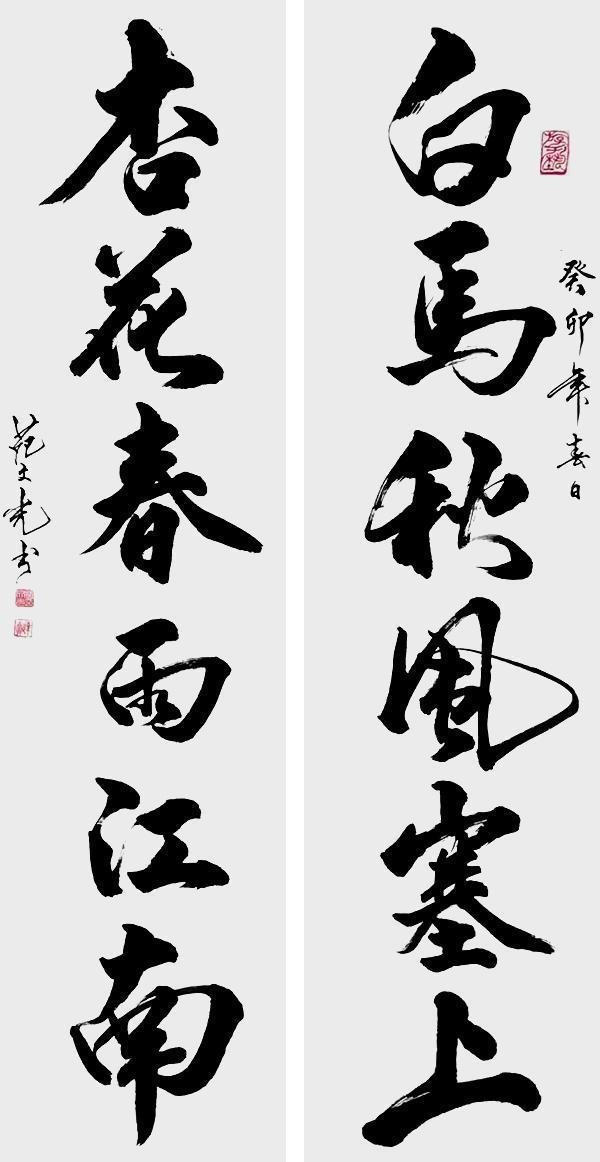 癸卯年春日
白馬秋風塞上
杏花春雨江南
范文光书